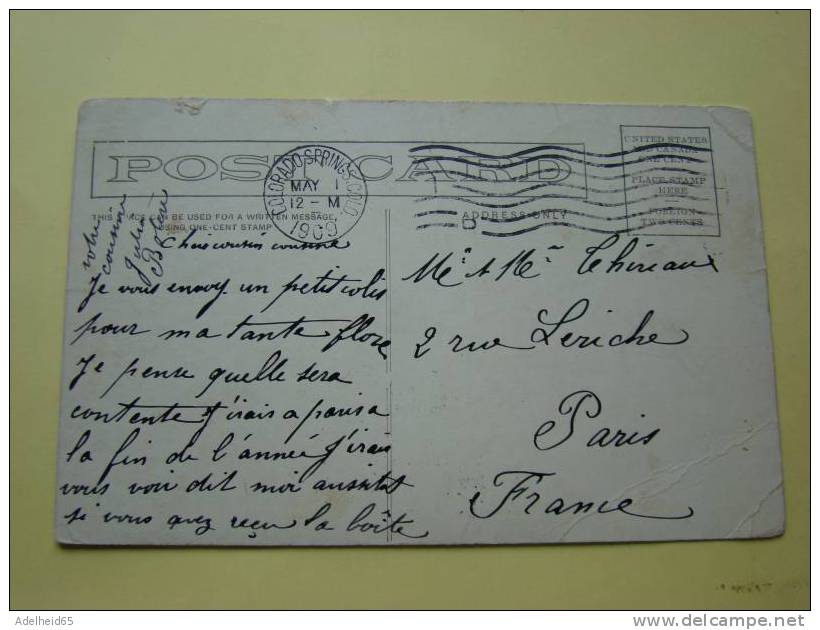 POST CARD
COLORADO SPRINGS, COLO.
MAY 1
12 - M
1909
UNITED STATES
AND CANADA
ONE CENT
PLACE STAMP
HERE
FOREIGN
TWO CENTS
THIS SPACE CAN BE USED FOR A WRITTEN MESSAGE,
USING ONE-CENT STAMP
ADDRESS ONLY
Chais cousin cousine
Je vous envoy un petit colis
pour ma tante flore
Je pense quelle sera
contente J'irais a paris a
la fin de l'année J'irais
vous voir dit moi aussitot
si vous avez reçu la boîte
votre
cousine
Julia
Mr & Me Thireau
2 rue Leriche
Paris
France
Adelheid65
delcampe.net